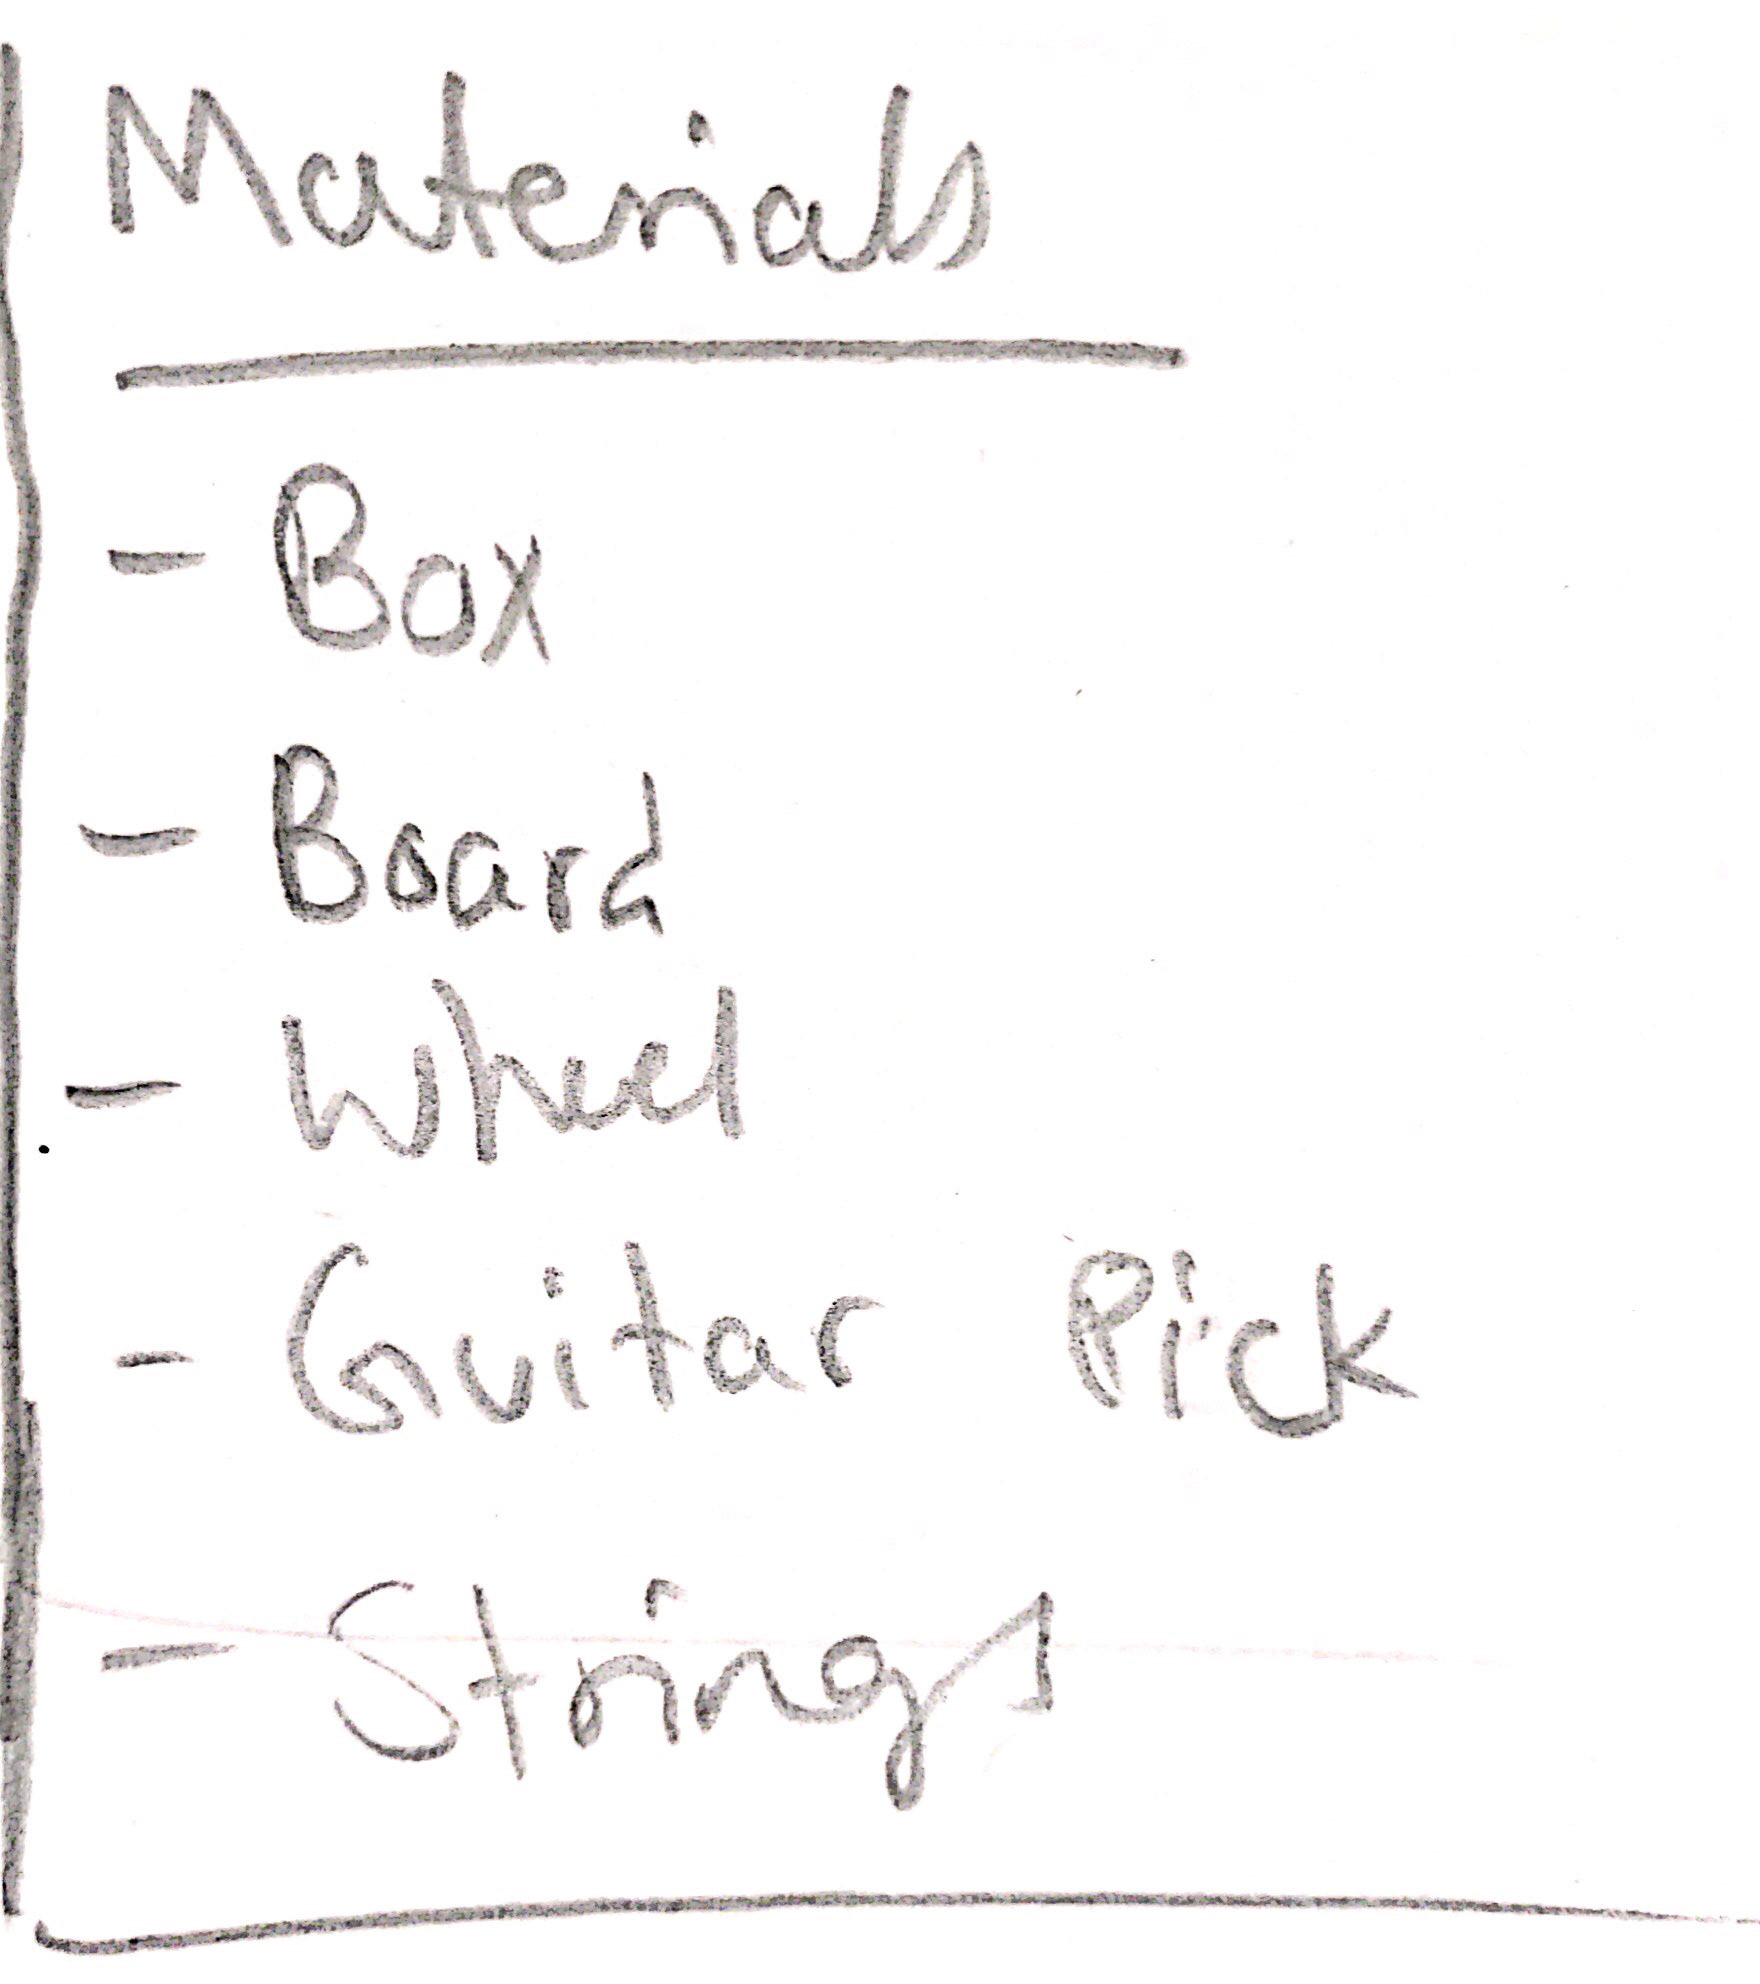 Materials
- Box
- Board
- Wheel
- Guitar Pick
- Strings